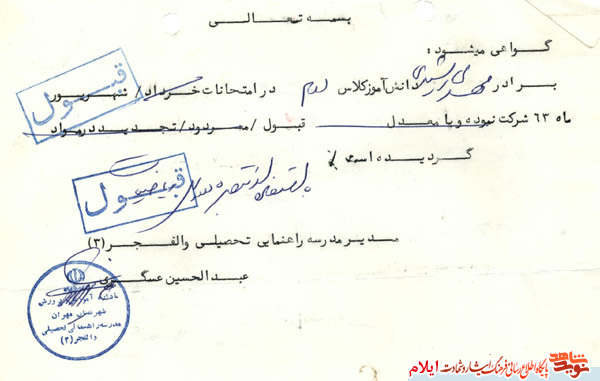 بسمه تعالی
گواهی میشود :
برادر مهدی رشیدی دانش آموز کلاس دوم در امتحانات خرداد / شهریور
ماه ۶۳ شرکت نموده و با معدل قبول / مردود / تجدید در مواد
گردیده است /
قبول
قبول
مدیر مدرسه راهنمایی تحصیلی والفجر (۳)
عبدالحسین عسگری
اداره آموزش و پرورش
شهرستان مهران
مدرسه راهنمائی تحصیلی
والفجر (۳)
نوید شاهد
پایگاه اطلاع رسانی فرهنگ ایثار و شهادت ایلام